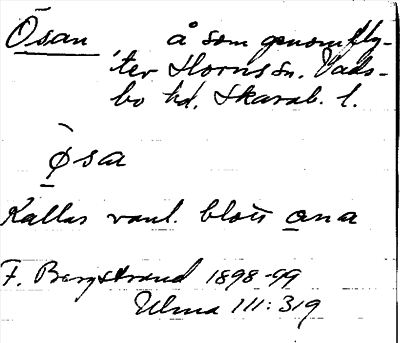 Ösan å som genomfly-
ter Horns sn. Vads-
bo hd. Skarab. l.
ø̀sa
Kallas vanl. blott ana
F. Bergstrand 1898-99
Ulma 111:319